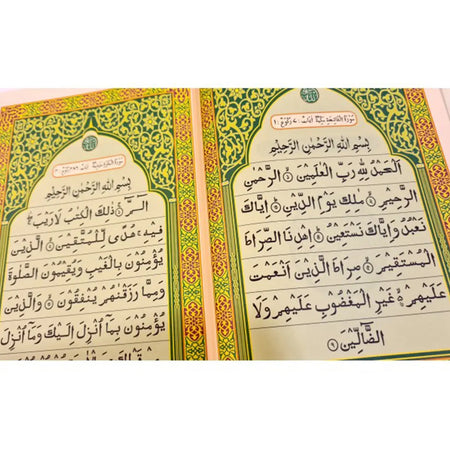 سُوْرَةُ الْفَاتِحَةِ مَكِّيَّةٌ اٰيَاتُ ٧ رُكُوْعُ ١
بِسْمِ اللهِ الرَّحْمٰنِ الرَّحِيْمِ
اَلْحَمْدُ لِلّٰهِ رَبِّ الْعٰلَمِيْنَ الرَّحْمٰنِ
الرَّحِيْمِ مٰلِكِ يَوْمِ الدِّيْنِ اِيَّاكَ
نَعْبُدُ وَاِيَّاكَ نَسْتَعِيْنُ اِهْدِنَا الصِّرَاطَ
الْمُسْتَقِيْمَ صِرَاطَ الَّذِيْنَ اَنْعَمْتَ
عَلَيْهِمْ غَيْرِ الْمَغْضُوْبِ عَلَيْهِمْ وَلَا
الضَّآلِّيْنَ
بِسْمِ اللهِ الرَّحْمٰنِ الرَّحِيْمِ
الٓمّٓ ذٰلِكَ الْكِتٰبُ لَا رَيْبَ
فِيْهِ هُدًى لِّلْمُتَّقِيْنَ الَّذِيْنَ
يُؤْمِنُوْنَ بِالْغَيْبِ وَيُقِيْمُوْنَ الصَّلٰوةَ
وَمِمَّا رَزَقْنٰهُمْ يُنْفِقُوْنَ وَالَّذِيْنَ
يُؤْمِنُوْنَ بِمَآ اُنْزِلَ اِلَيْكَ وَمَآ اُنْزِلَ